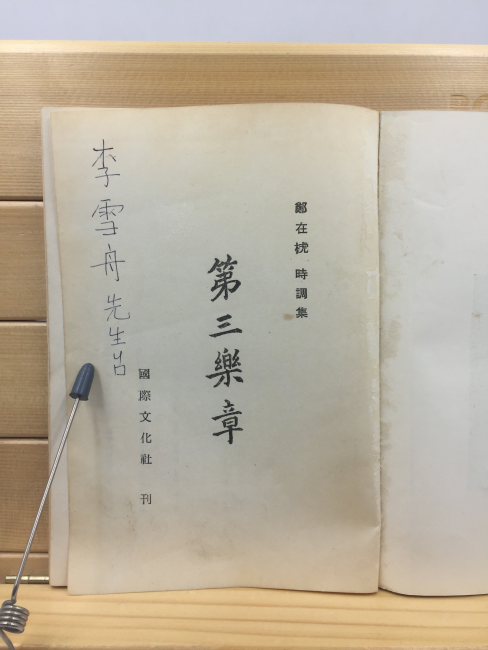 鄭在 時調集
第三樂章
國際文化社 刊
李雪舟先生